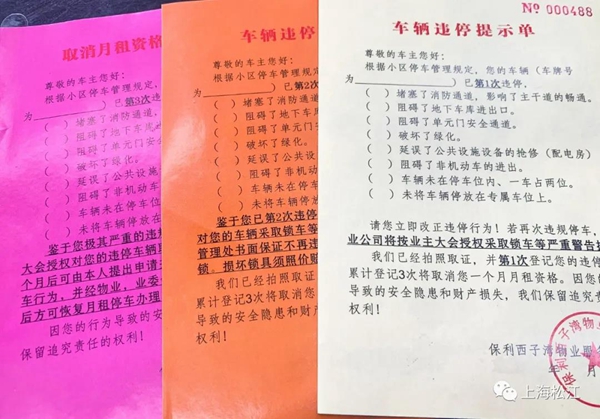 取消月租资格
尊敬的车主您好:
根据小区停车管理规定,
为 ) 已第3次违停
( ) 堵塞了消防通道,
( ) 阻碍了地下车库
( ) 阻碍了单元门
( ) 破坏了绿化。
( ) 延误了公共设
( ) 阻碍了非机动车
( ) 车辆未在停车
( ) 未将车辆停放
鉴于您极其严重的违
大会授权对您的违停车辆
个月后可由本人提出申请
车行为,并经物业,业委
后方可恢复月租停车办理
因您的行为导致的安
保留追究责任的权利!
车辆违停
尊敬的车主您好:
根据小区停车管理规定,
为 ) 已第2次
( ) 堵塞了消防通道,
( ) 阻碍了地下车库
( ) 阻碍了单元门安
( ) 破坏了绿化。
( ) 延误了公共设
( ) 阻碍了非机动
( ) 车辆未在停车
( ) 未将车辆停放
鉴于您已第2次违停
对您的车辆采取锁车等
管理处书面保证不再违
锁。损坏锁具须照价赔
我们已经拍照取证,
累计登记3次将取消您
导致的安全隐患和财产
权利!
№ 000488
车辆违停提示单
尊敬的车主您好:
根据小区停车管理规定,您的车辆(车牌号
为 ) 已第1次违停,
( ) 堵塞了消防通道,影响了主干道的畅通。
( ) 阻碍了地下车库进出口。
( ) 阻碍了单元门安全通道。
( ) 破坏了绿化。
( ) 延误了公共设施设备的抢修(配电房)
( ) 阻碍了非机动车的进出。
( ) 车辆未在停车位内、一车占两位。
( ) 未将车辆停放在专属车位上。
请您立即改正违停行为!若再次违规停车,
业公司将按业主大会授权采取锁车等严重警告措
我们已经拍照取证,并第1次登记您的违停
累计登记3次将取消您一个月月租资格。因您的
导致的安全隐患和财产损失,我们保留追究责
权利!
保利西子湾物业服务
年 月
保利西子湾物业
上海松江